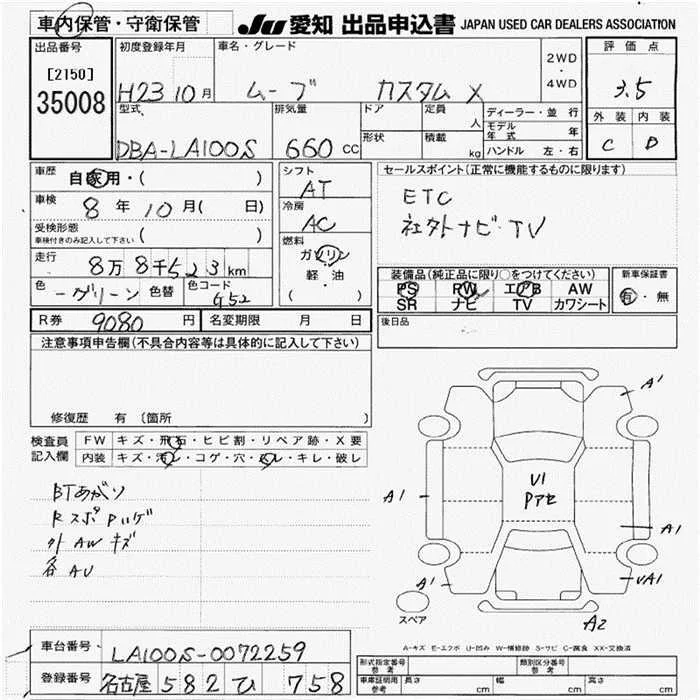 車内保管・守衛保管
JU 愛知 出品申込書 JAPAN USED CAR DEALERS ASSOCIATION
出品番号
[2150]
35008
初度登録年月
H23 10月
車名・グレード
ムーブ カスタム X
2WD
・
4WD
評価点
3.5
外装 内装
C D
型式
DBA-LA100S
排気量
660 CC
ドア
形状
定員
人
積載
kg
ディーラー・並行
モデル年式 年
ハンドル 左・右
車歴 自家用・( )
車検 8年10月( 日)
受検形態
車検付きのみ記入して下さい ( )
走行 8万8千523km
色 グリーン 色替 色コード G52
シフト
AT
冷房
AC
燃料
ガソリン
軽・油
( )
セールスポイント(正常に機能するものに限ります)
ETC
社外ナビ・TV
装備品(純正品に限り○をつけてください)
PS PW エアB AW
SR ナビ TV カワシート
新車保証書
有・無
R券 9080円 名変期限 月 日
後日品
注意事項申告欄(不具合内容等は具体的に記入して下さい)
修復歴 有 〔箇所 〕
検査員記入欄
FW キズ・飛石・ヒビ割・リペア跡・X要
内装 キズ・汚レ・コゲ・穴・スレ・キレ・破レ
BTあがり
RスポPハゲ
外AWキズ
各AU
A1
A1
U1
Pアセ
A1
A1
UA1
A2
スペア
A-キズ E-エクボ U-凹み W-補修跡 S-サビ C-腐食 XX-交換済
車台番号 LA100S-0072259
登録番号 名古屋 582 ひ 758
形式指定番号参考 類別区分番号参考
車庫証明用参考 長さ cm 幅 cm 高さ cm